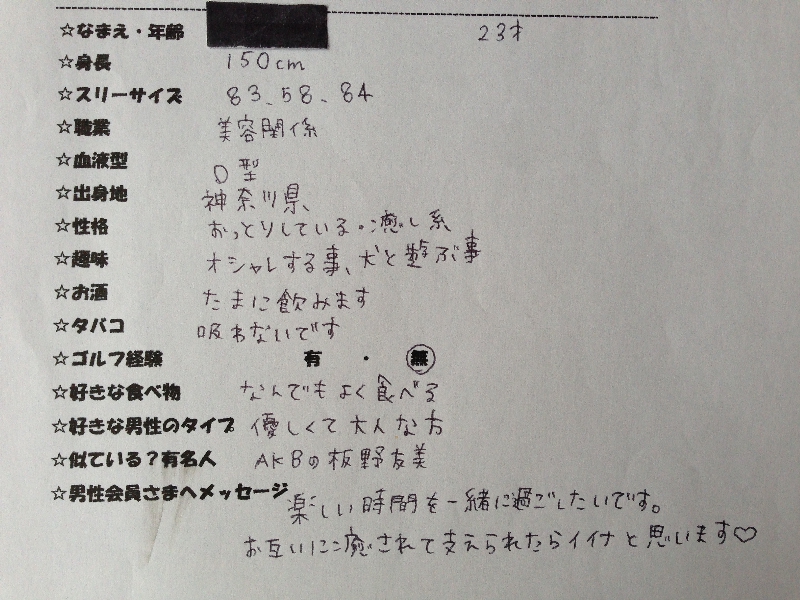 ☆なまえ・年齢 23才
☆身長 150cm
☆スリーサイズ 83、58、84
☆職業 美容関係
☆血液型 O型
☆出身地 神奈川県
☆性格 おっとりしている・癒し系
☆趣味 オシャレする事、犬と遊ぶ事
☆お酒 たまに飲みます
☆タバコ 吸わないです
☆ゴルフ経験 有 ・ 無
☆好きな食べ物 なんでもよく食べる
☆好きな男性のタイプ 優しくて大人な方
☆似ている?有名人 AKBの板野友美
☆男性会員さまへメッセージ 楽しい時間を一緒に過ごしたいです。
お互いに癒されて支えられたらイイナと思います♡